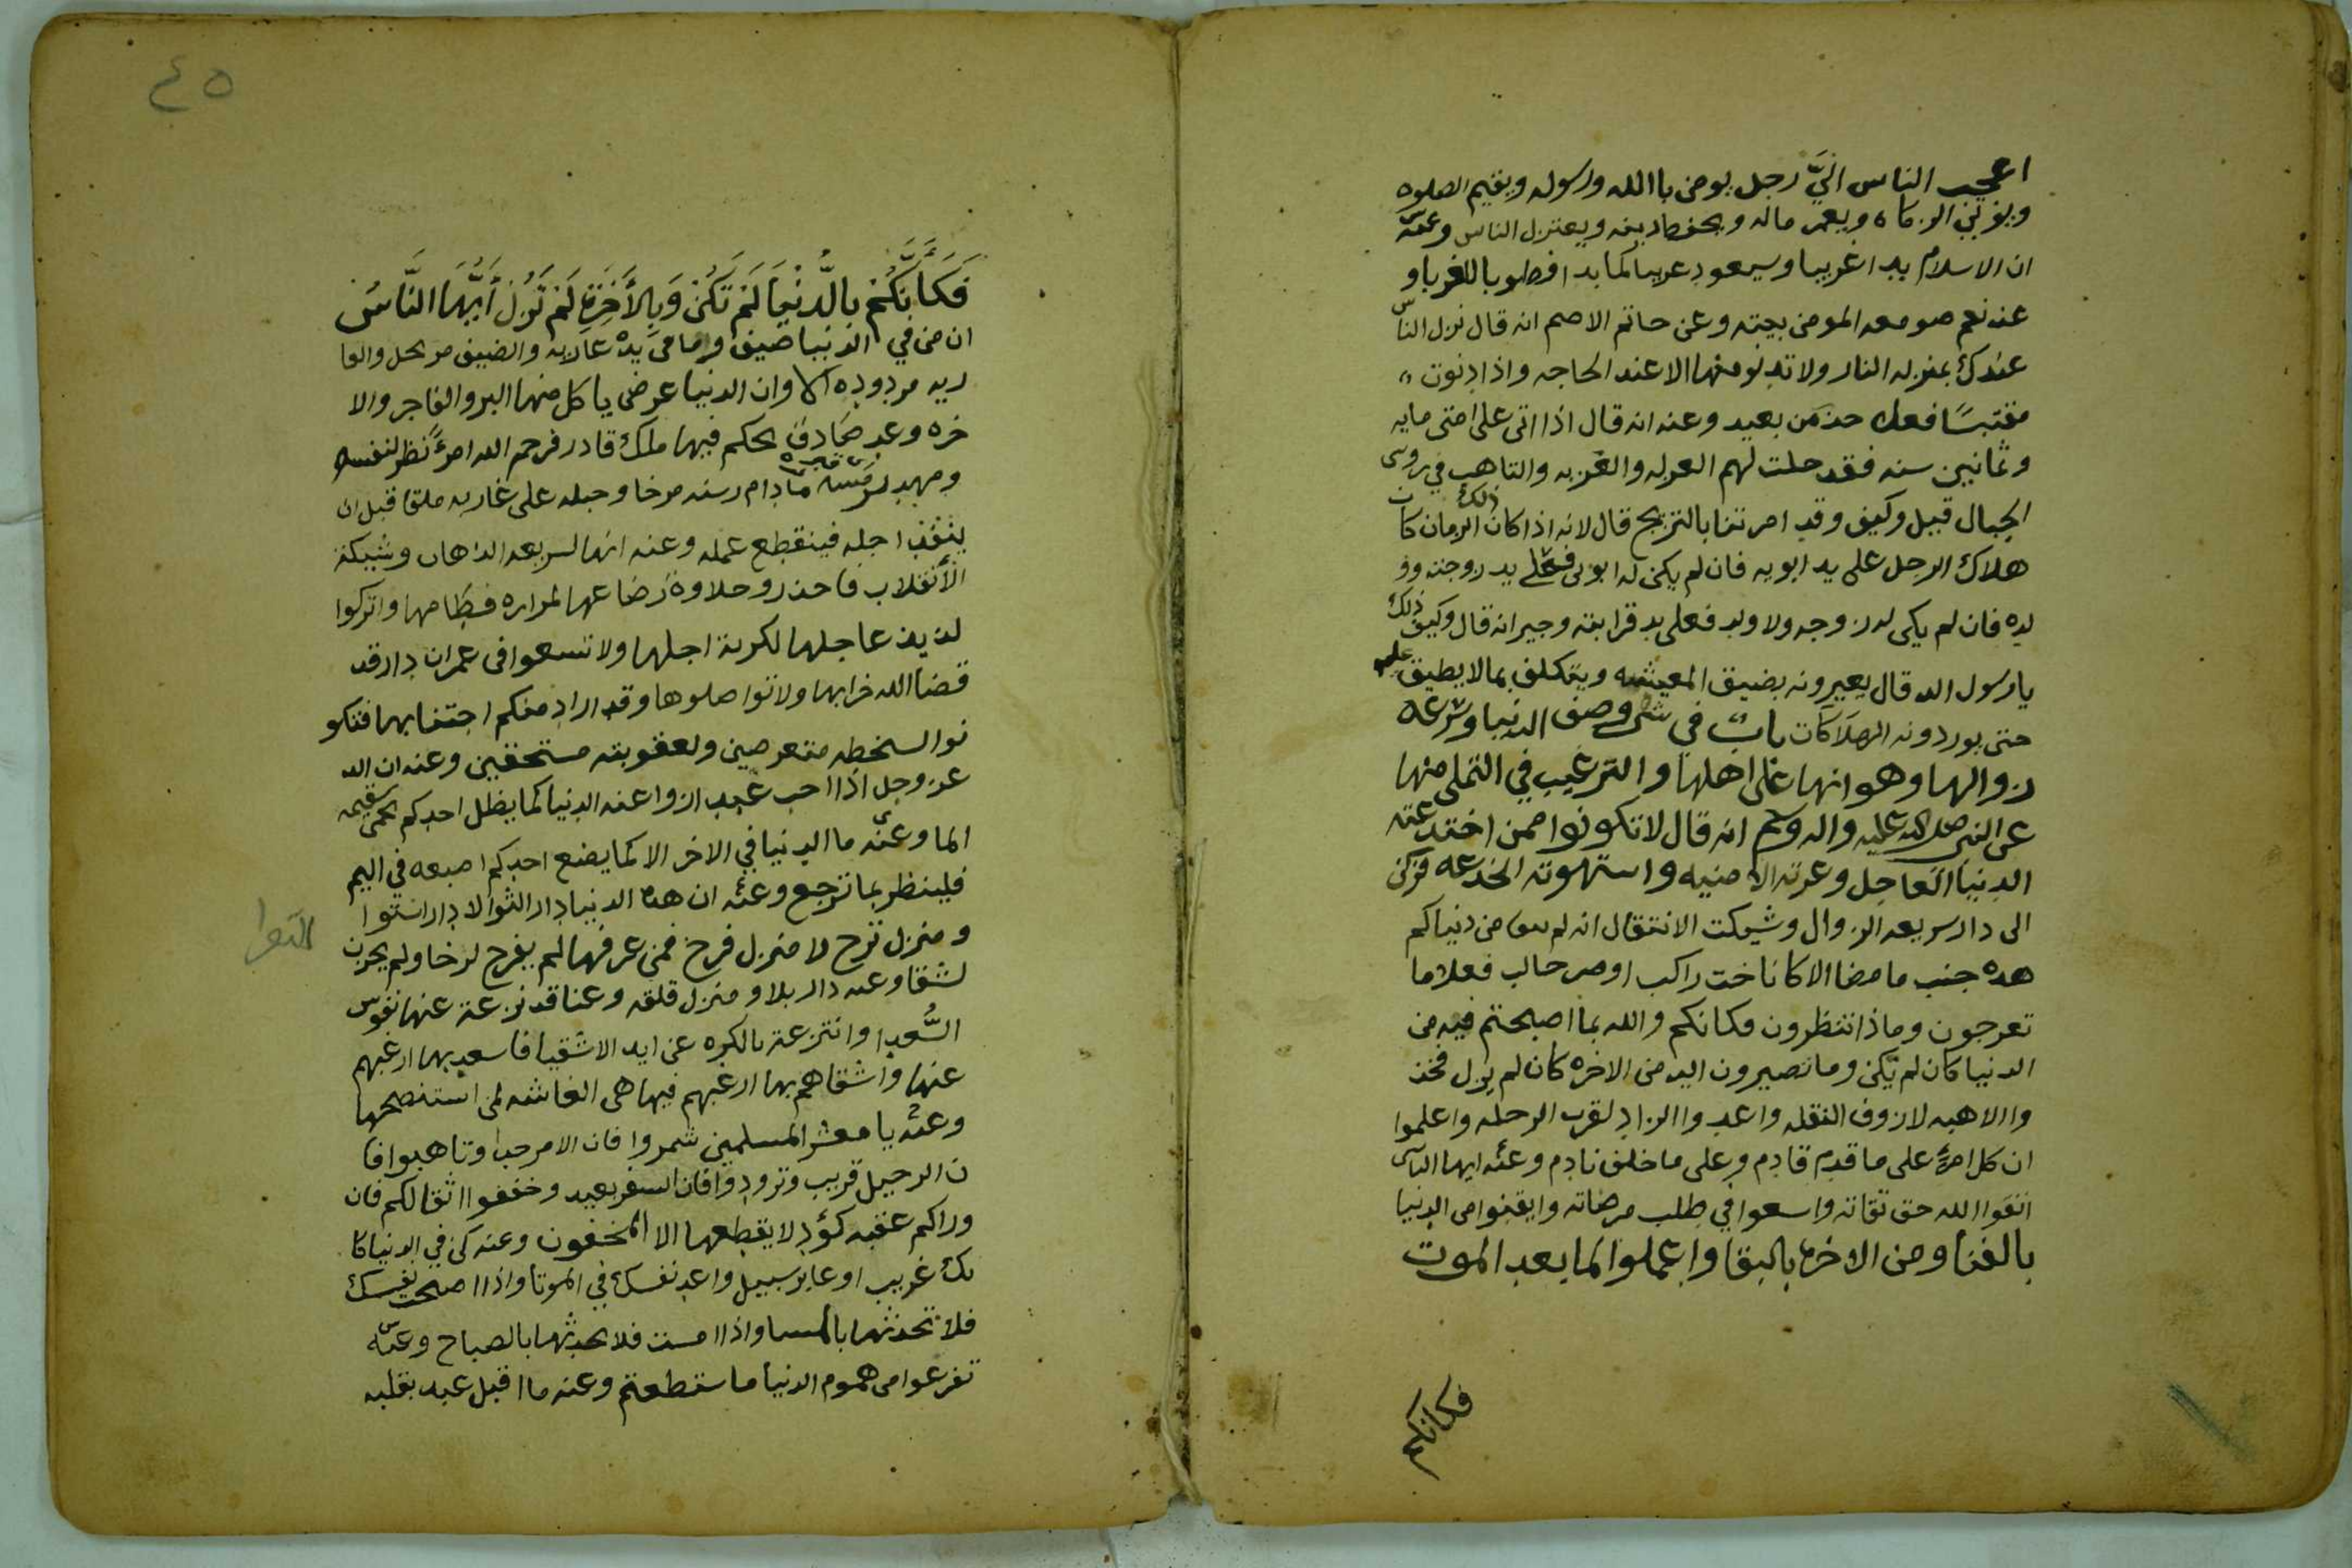 اعجب الناس اليَّ رجل يومن باالله ورسوله ويقيم الصلوه
ويوتي الزكاه ويعمر ماله ويحفظ دينه ويعتزل الناس وعنه
ان الاسلام بدا غريبا وسيعود غريبا كما بدا فطوبا للغربا و
عنه نعم صومعه المومن بيته وعن حاتم الاصم انه قال نزل الناس
عندك بمنزله النار ولا تدنو منها الا عند الحاجه واذا دنوت
مقتبسًا فعلى حذر من بعيد وعنه انه قال اذا اتى على امتي مايه
وثمانين سنه فقد حلت لهم العزله والغربه والتاهب في روس
الجبال قيل وكيف ذلك وقد امرتنا بالتزيج قال لانه اذا كان الزمان كان
هلاك الرجل على يد ابويه فان لم يكن له ابوين فعلى يد زوجته وو
لده فان لم يكن له زوجه ولا ولد فعلى يد قرابته وجيرانه قال وكيف ذلك
يا رسول الله قال يعيرونه بضيق المعيشه ويتكلف بما لا يطيق
حتى يوردونه الهلاكات باب في شي وصف الدنيا وسرعة
زوالها وهوانها على اهلها والترغيب في التخلي منها
عن النبي صلى الله عليه واله وسلم انه قال لا تكونوا ممن اختدعته
الدنيا العاجل وغرته الامنيه واستهوته الخدعه فركن
الى دار سريعه الزوال وشيكت الانتقال انه لم يبق من دنياكم
هذه جنب ما مضا الا كاناخت راكب او صر حالب فعلاما
تعرجون وماذا تنتظرون فكانكم والله بما اصبحتم فيه من
الدنيا كان لم تكن وما تصيرون اليه من الاخره كان لم يزل فخذ
وا الاهبه لازوف النقله واعدوا الزاد لقرب الرحله واعلموا
ان كل امرئٍ على ما قدم قادم وعلى ما خلف نادم وعنه ايها الناس
اتقوا الله حق تقاته واسعوا في طلب مرضاته وايقنوا من الدنيا
بالفنا ومن الاخره بالبقا واعملوا لما بعد الموت
فكانكم
٤٥
فَكَأَنَّكُمْ بِالدُّنْيَا لَمْ تَكُنْ وَبِالأَخِرَةِ لَمْ تَزُلْ أَيُّهَا النَّاسُ
ان من في الدنيا ضيف وما في يده عاريه والضيف مرتحل والعا
ريه مردوده الا وان الدنيا عرض ياكل منها البر والفاجر والا
خره وعد صادق يحكم فيها ملك قادر فرحم الله امرءً نظر لنفسه
ومهد لرمسه ما دام رسنه مرخا وحبله على غاربه ملقا قبل ان
ينفذ اجله فينقطع عمله وعنه انها لسريعه الذهاب وشيكة
الأنقلاب فاحذروا حلاوة رضاعها لمراره فطامها واتركوا
لذيذ عاجلها لكربة اجلها ولا تسعوا في عمران دار قد
قضا الله خرابها ولا تواصلوها وقد اراد منكم اجتنابها فتكو
نوا لسخطه متعرضين ولعقوبته مستحقين وعنه ان الله
عز وجل اذا احب عبدا زوا عنه الدنيا كما يظل احدكم يحمي سقيمه
الما وعنه ما الدنيا في الاخر الا كما يضع احدكم اصبعه في اليم
فلينظر بما ترجع وعنه ان هذه الدنيا دار التوا لا دار استوا
التوا
ومنزل ترح لا منزل فرح فمن عرفها لم يفرح لرخا ولم يحزن
لشقا وعنه دار بلا ومنزل قلقه وعنا قد نزعة عنها نفوس
السُّعدا وانتزعة بالكره عن ايد الاشقيا فاسعد بها ارغبهم
عنها واشقاهم بها ارغبهم فيها هي الغاشه لمن استنصحها
وعنه يا معشر المسلمين شمروا فان الامر جد وتاهبوا فا
ن الرحيل قريب وتزودوا فان السفر بعيد وخففوا اثقالكم فان
وراكم عقبه كؤد لا يقطعها الا المخفون وعنه كن في الدنيا كا
نك غريب او عابر سبيل واعد نفسك في الموتا واذا اصبحت نفسك
فلا تحدثها بالمسا واذا امسيت فلا تحدثها بالصباح وعنه
تفرغوا من هموم الدنيا ما ستطعتم وعنه ما اقبل عبد بقلبه